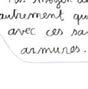 autrement qu
avec ces sa
armures.